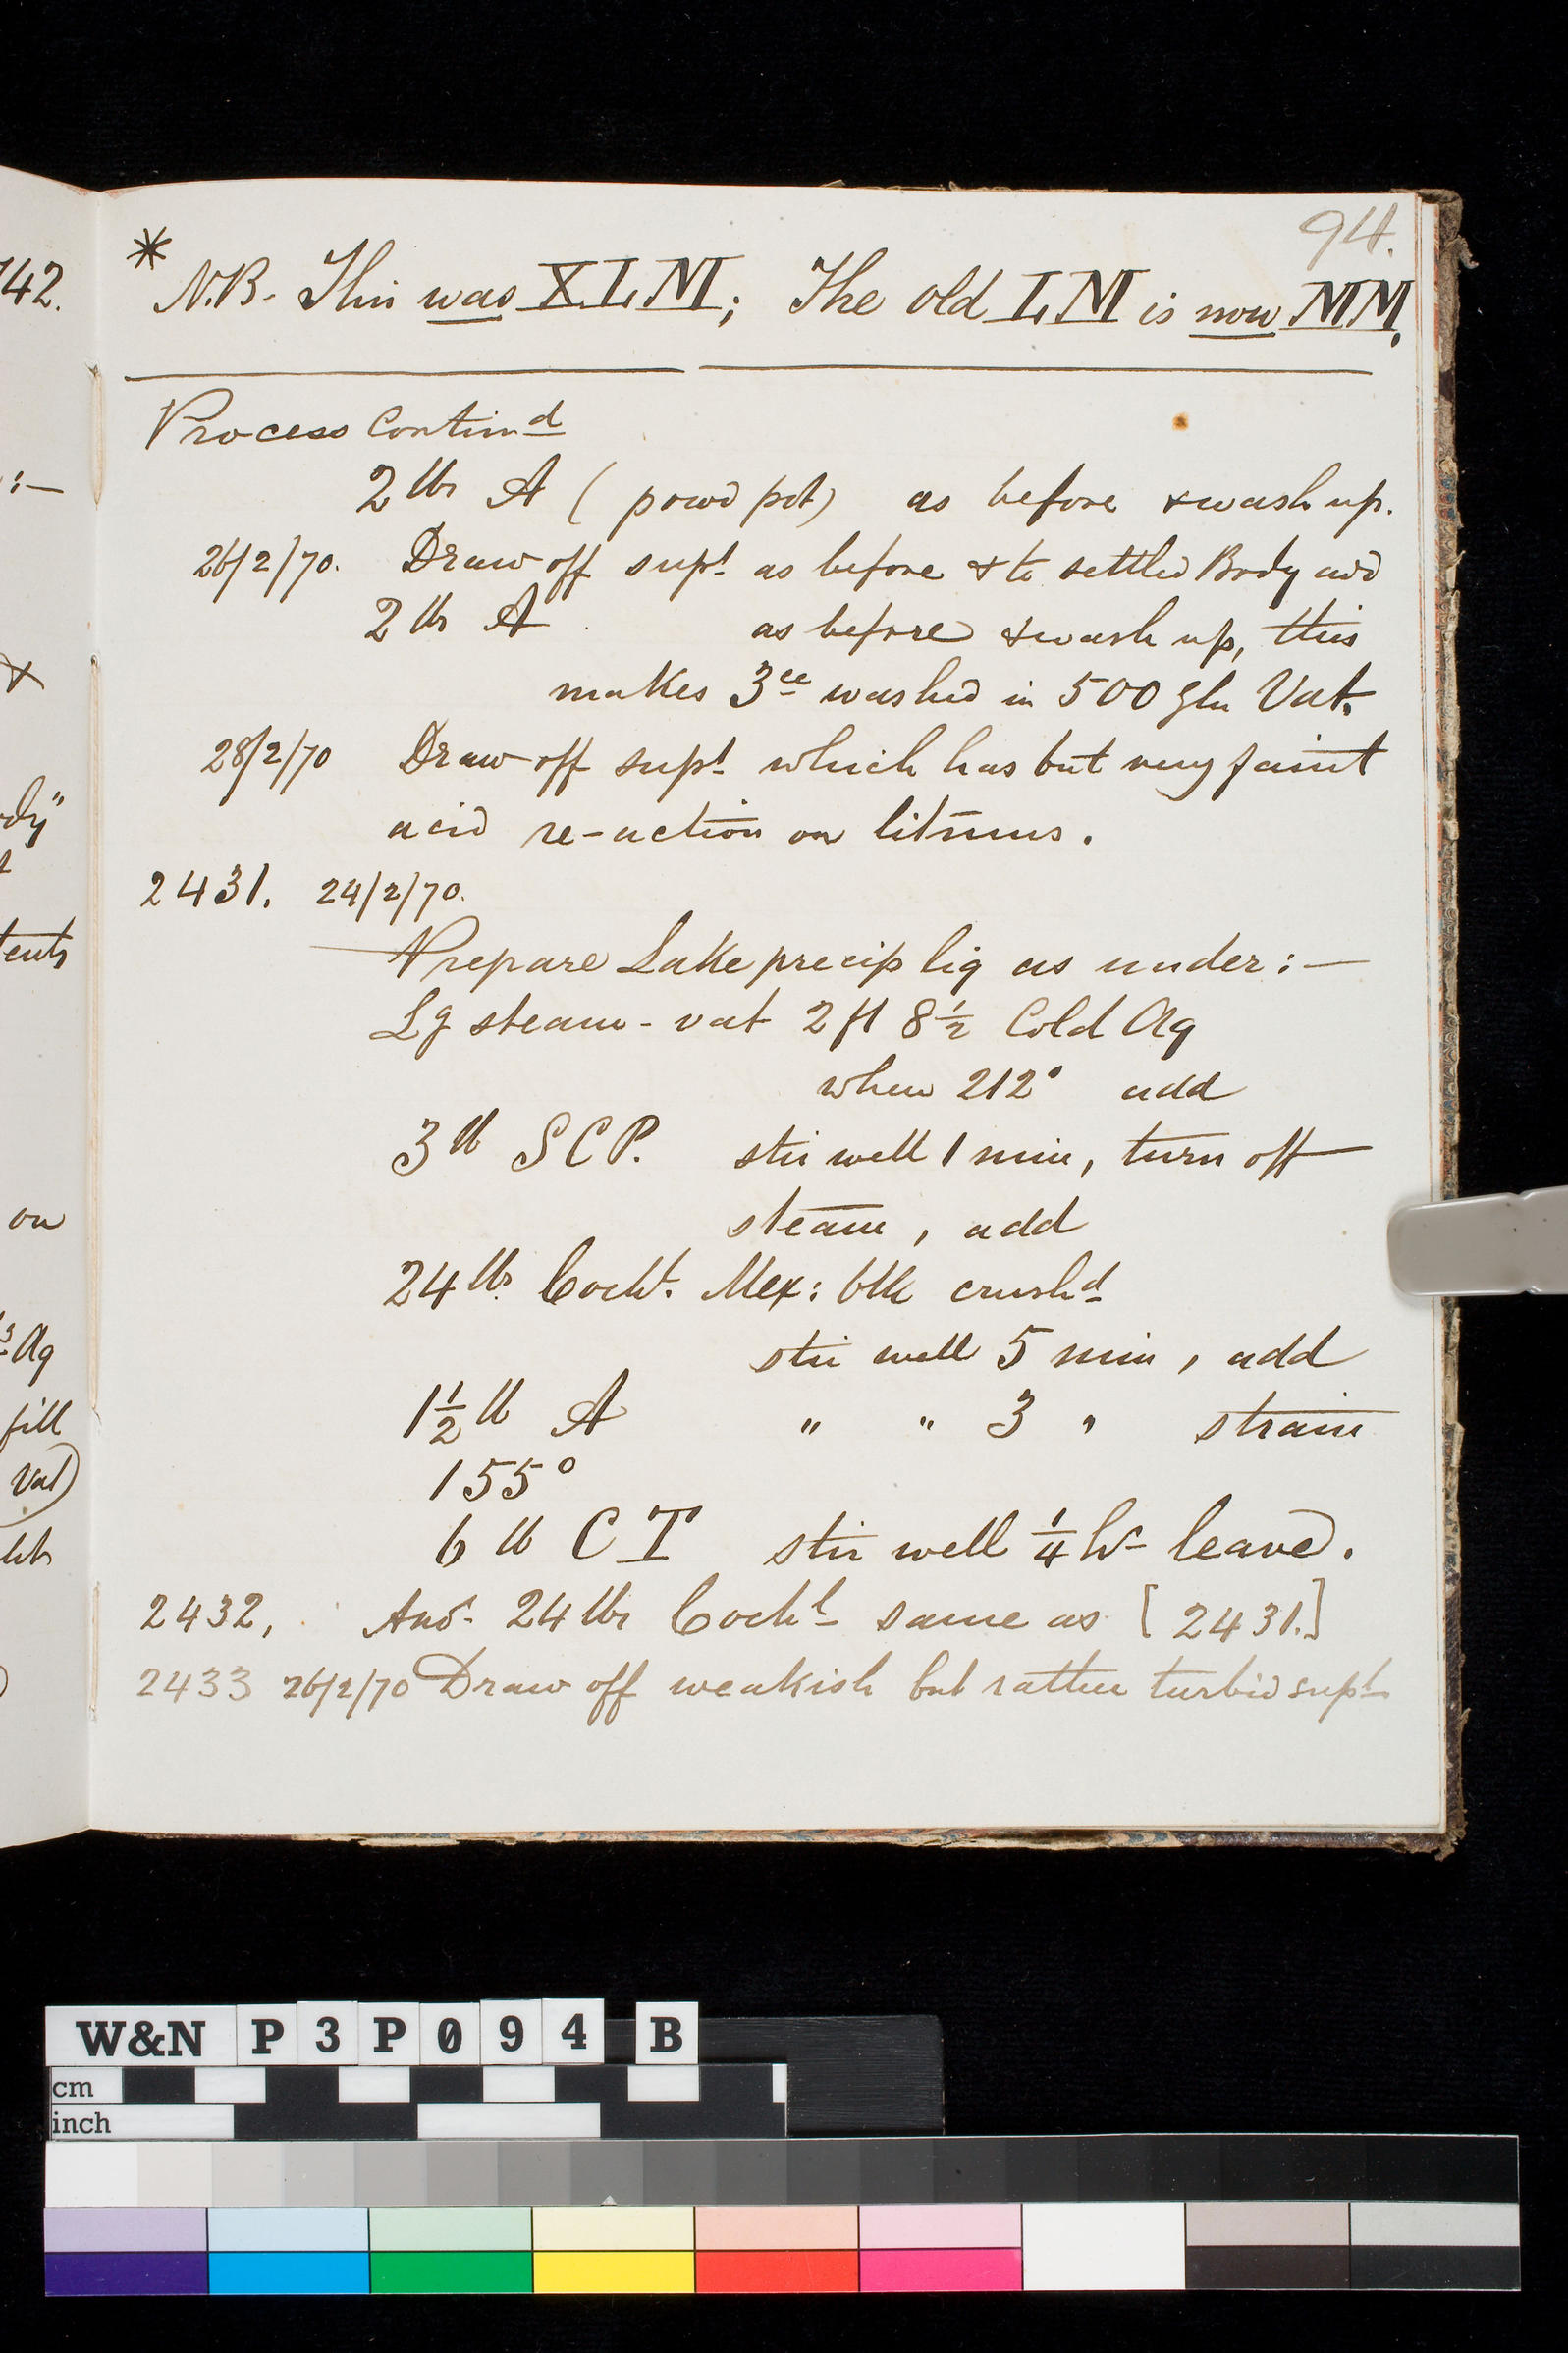 94.
* N.B. This was XLM; The old LM is now MM.
Process Contind
2 lbs A (powd pot) as before & wash up.
26/2/70. Draw off supt as before & to settled Body add
2 lbs A as before & wash up, this
makes 3ce washed in 500 gln Vat.
28/2/70 Draw off supt which has but very faint
acid re-action on litmus.
2431. 24/2/70.
Prepare Lake precip liq as under :—
Lg steam-vat 2 ft 8½ Cold Aq
when 212° add
3 lb SCP. stir well 1 min, turn off
steam, add
24 lbs. Cochl. Mex: blk crushd
stir well 5 min, add
1½ lb A " " 3 " strain
155°
6 lb CT stir well ¼ hr leave.
2432, Anor. 24 lbs Cochl same as [2431.]
2433 26/2/70 Draw off weakish but rather turbid supt
142.
:—
&
dy"
tents
on
Aq
fill
Vat)
W&N P3P094 B
cm
inch